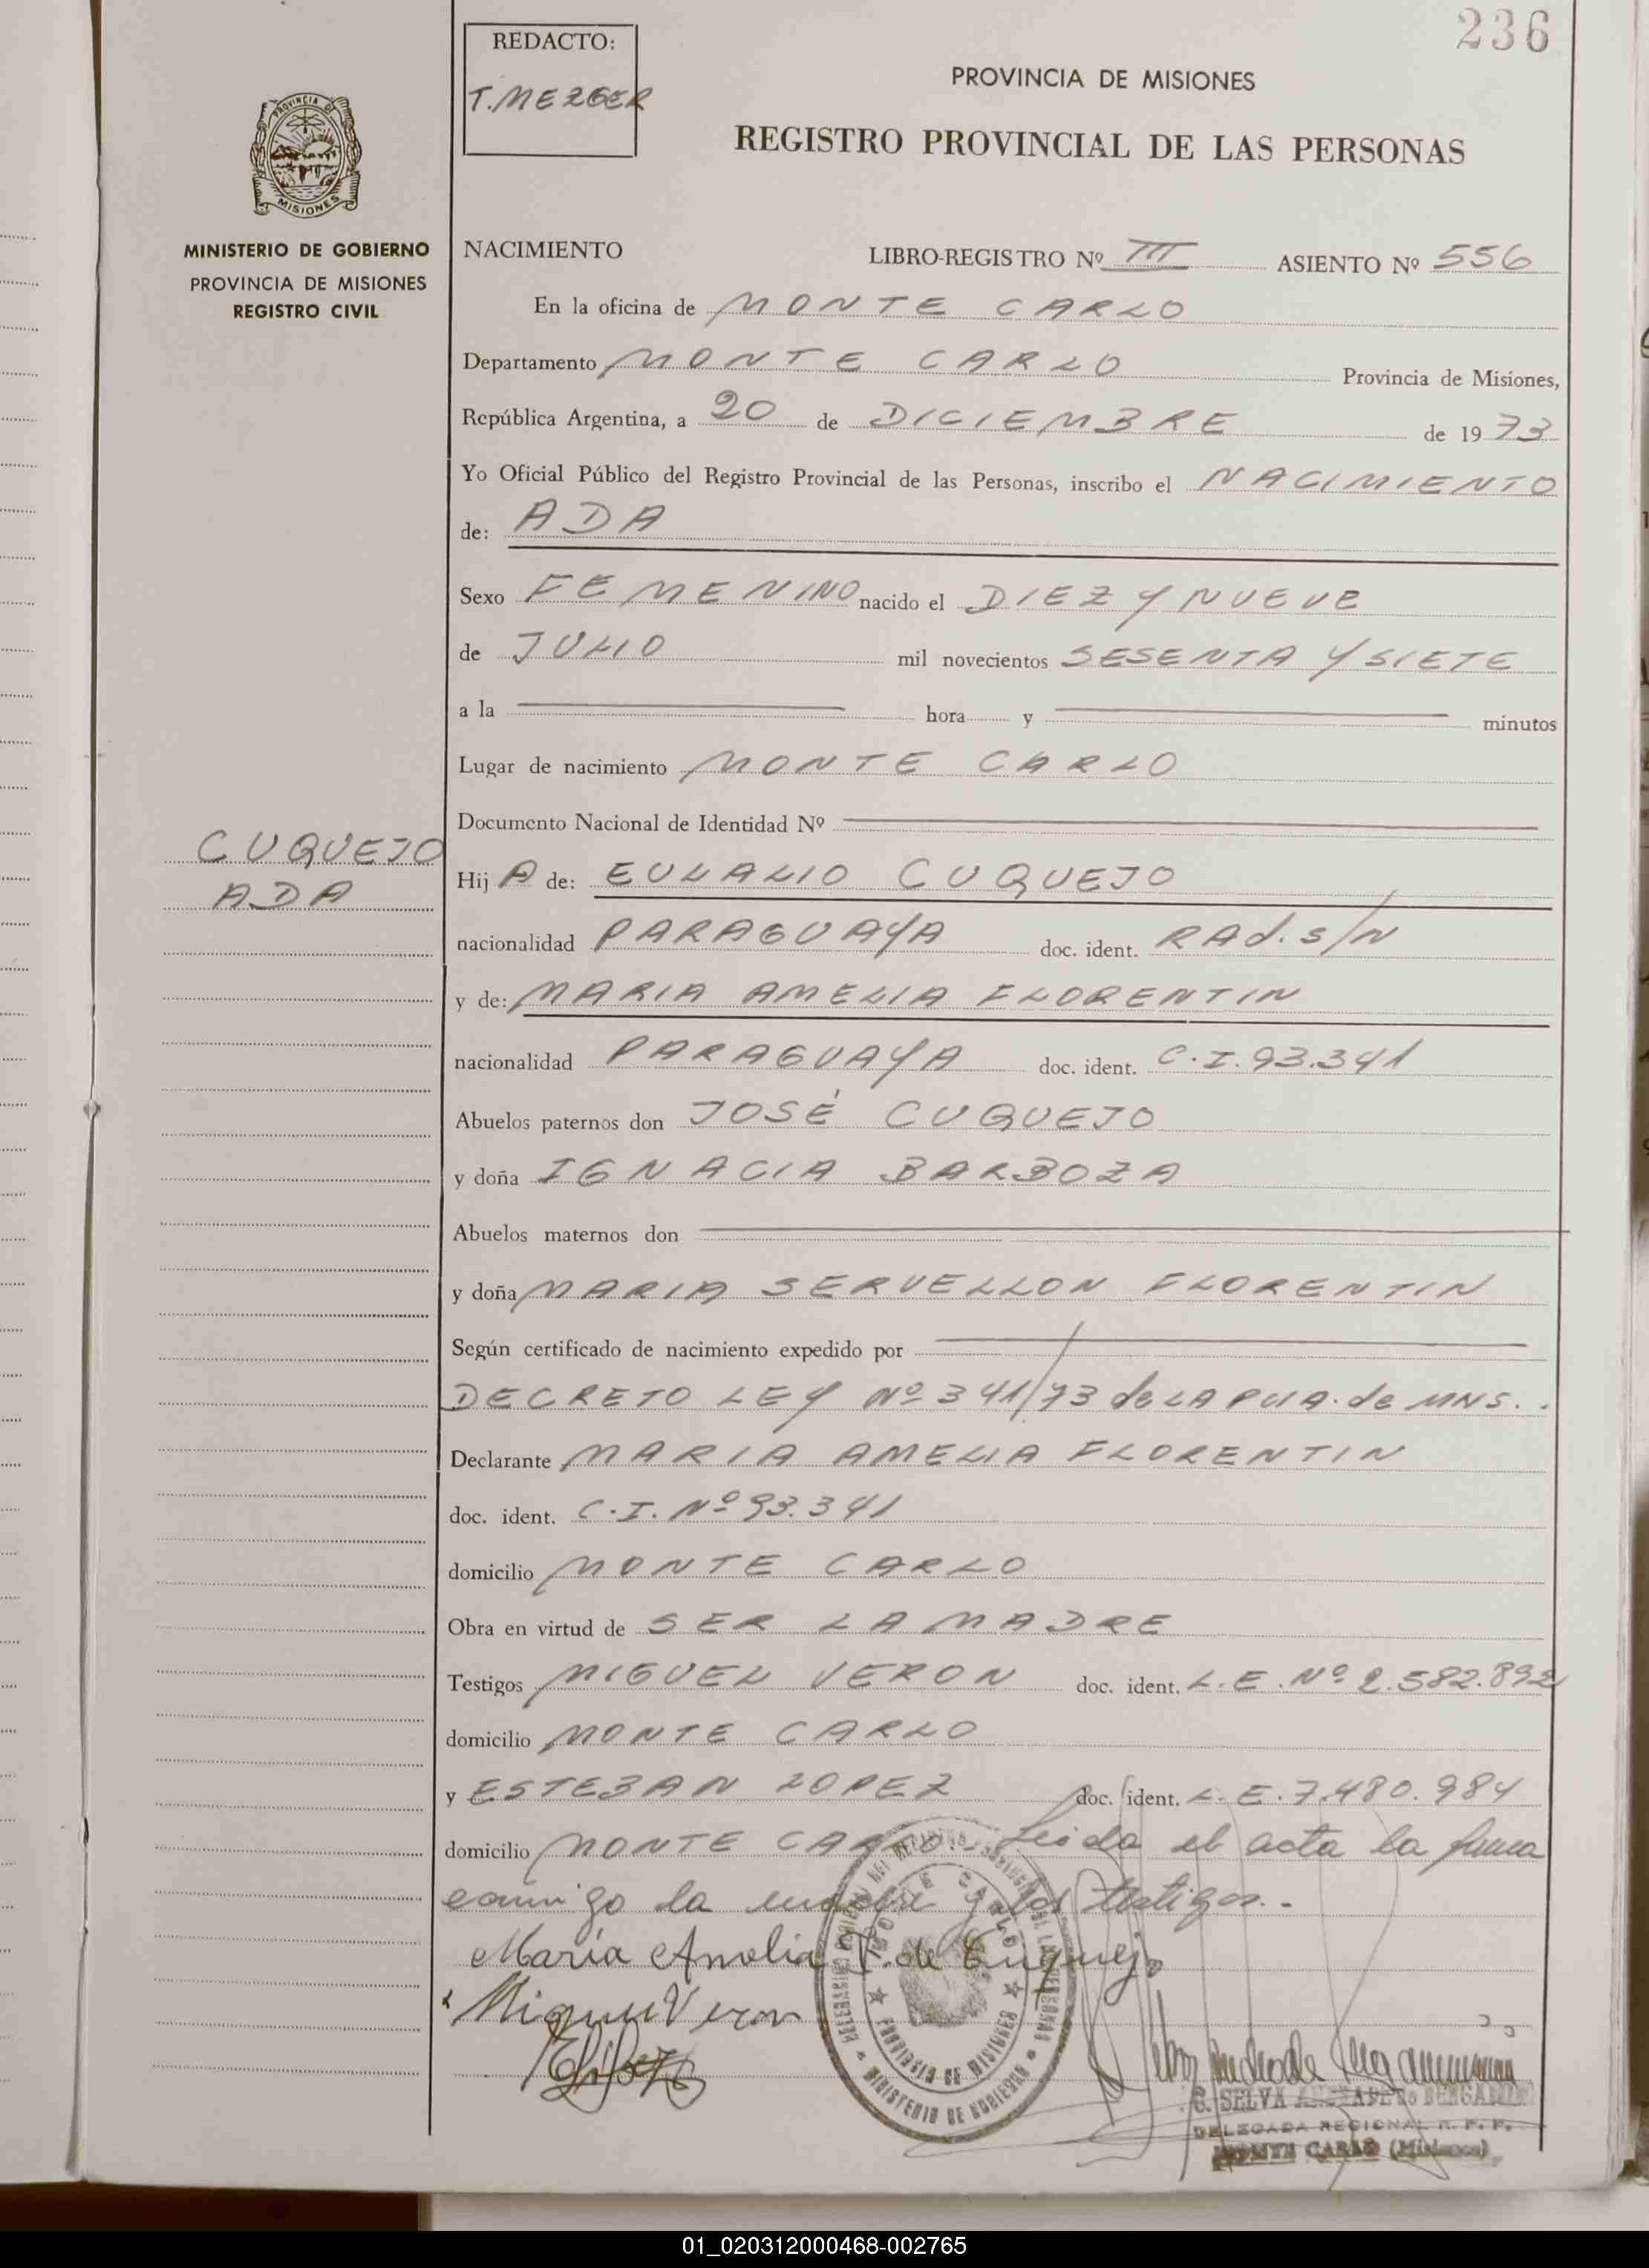 236
REDACTO:
T. MEZGER
PROVINCIA DE MISIONES
REGISTRO PROVINCIAL DE LAS PERSONAS
PROVINCIA DE
MISIONES
MINISTERIO DE GOBIERNO
PROVINCIA DE MISIONES
REGISTRO CIVIL
NACIMIENTO LIBRO-REGISTRO Nº III ASIENTO Nº 556
En la oficina de MONTE CARLO
Departamento MONTE CARLO Provincia de Misiones,
República Argentina, a 20 de DICIEMBRE de 1973
Yo Oficial Público del Registro Provincial de las Personas, inscribo el NACIMIENTO
de: ADA
Sexo FEMENINO nacido el DIEZ Y NUEVE
de JULIO mil novecientos SESENTA Y SIETE
a la hora y minutos
Lugar de nacimiento MONTE CARLO
Documento Nacional de Identidad Nº
CUQUEJO
ADA
Hij A de: EULALIO CUQUEJO
nacionalidad PARAGUAYA doc. ident. RAd. S/N
y de: MARIA AMELIA FLORENTIN
nacionalidad PARAGUAYA doc. ident. C.I. 93.341
Abuelos paternos don JOSÉ CUQUEJO
y doña IGNACIA BARBOZA
Abuelos maternos don
y doña MARIA SERVELLON FLORENTIN
Según certificado de nacimiento expedido por
DECRETO LEY Nº 341/73 de LA PVIA. de MNS..
Declarante MARIA AMELIA FLORENTIN
doc. ident. C.I. Nº 93.341
domicilio MONTE CARLO
Obra en virtud de SER LA MADRE
Testigos MIGUEL VERON doc. ident. L.E. Nº 2.582.892
domicilio MONTE CARLO
y ESTEBAN LOPEZ doc. ident. L.E. 7.480.984
domicilio MONTE CARLO. Leida el acta la firma
conmigo la madre y los testigos.-
María Amelia F. de Cuquejo
Miguel Veron
MONTE CARLO
PROVINCIA DE MISIONES
MINISTERIO DE GOBIERNO
G. SELVA
DELEGADA REGIONAL R. P. P.
MONTE CARLO (Misiones)
01_020312000468-002765